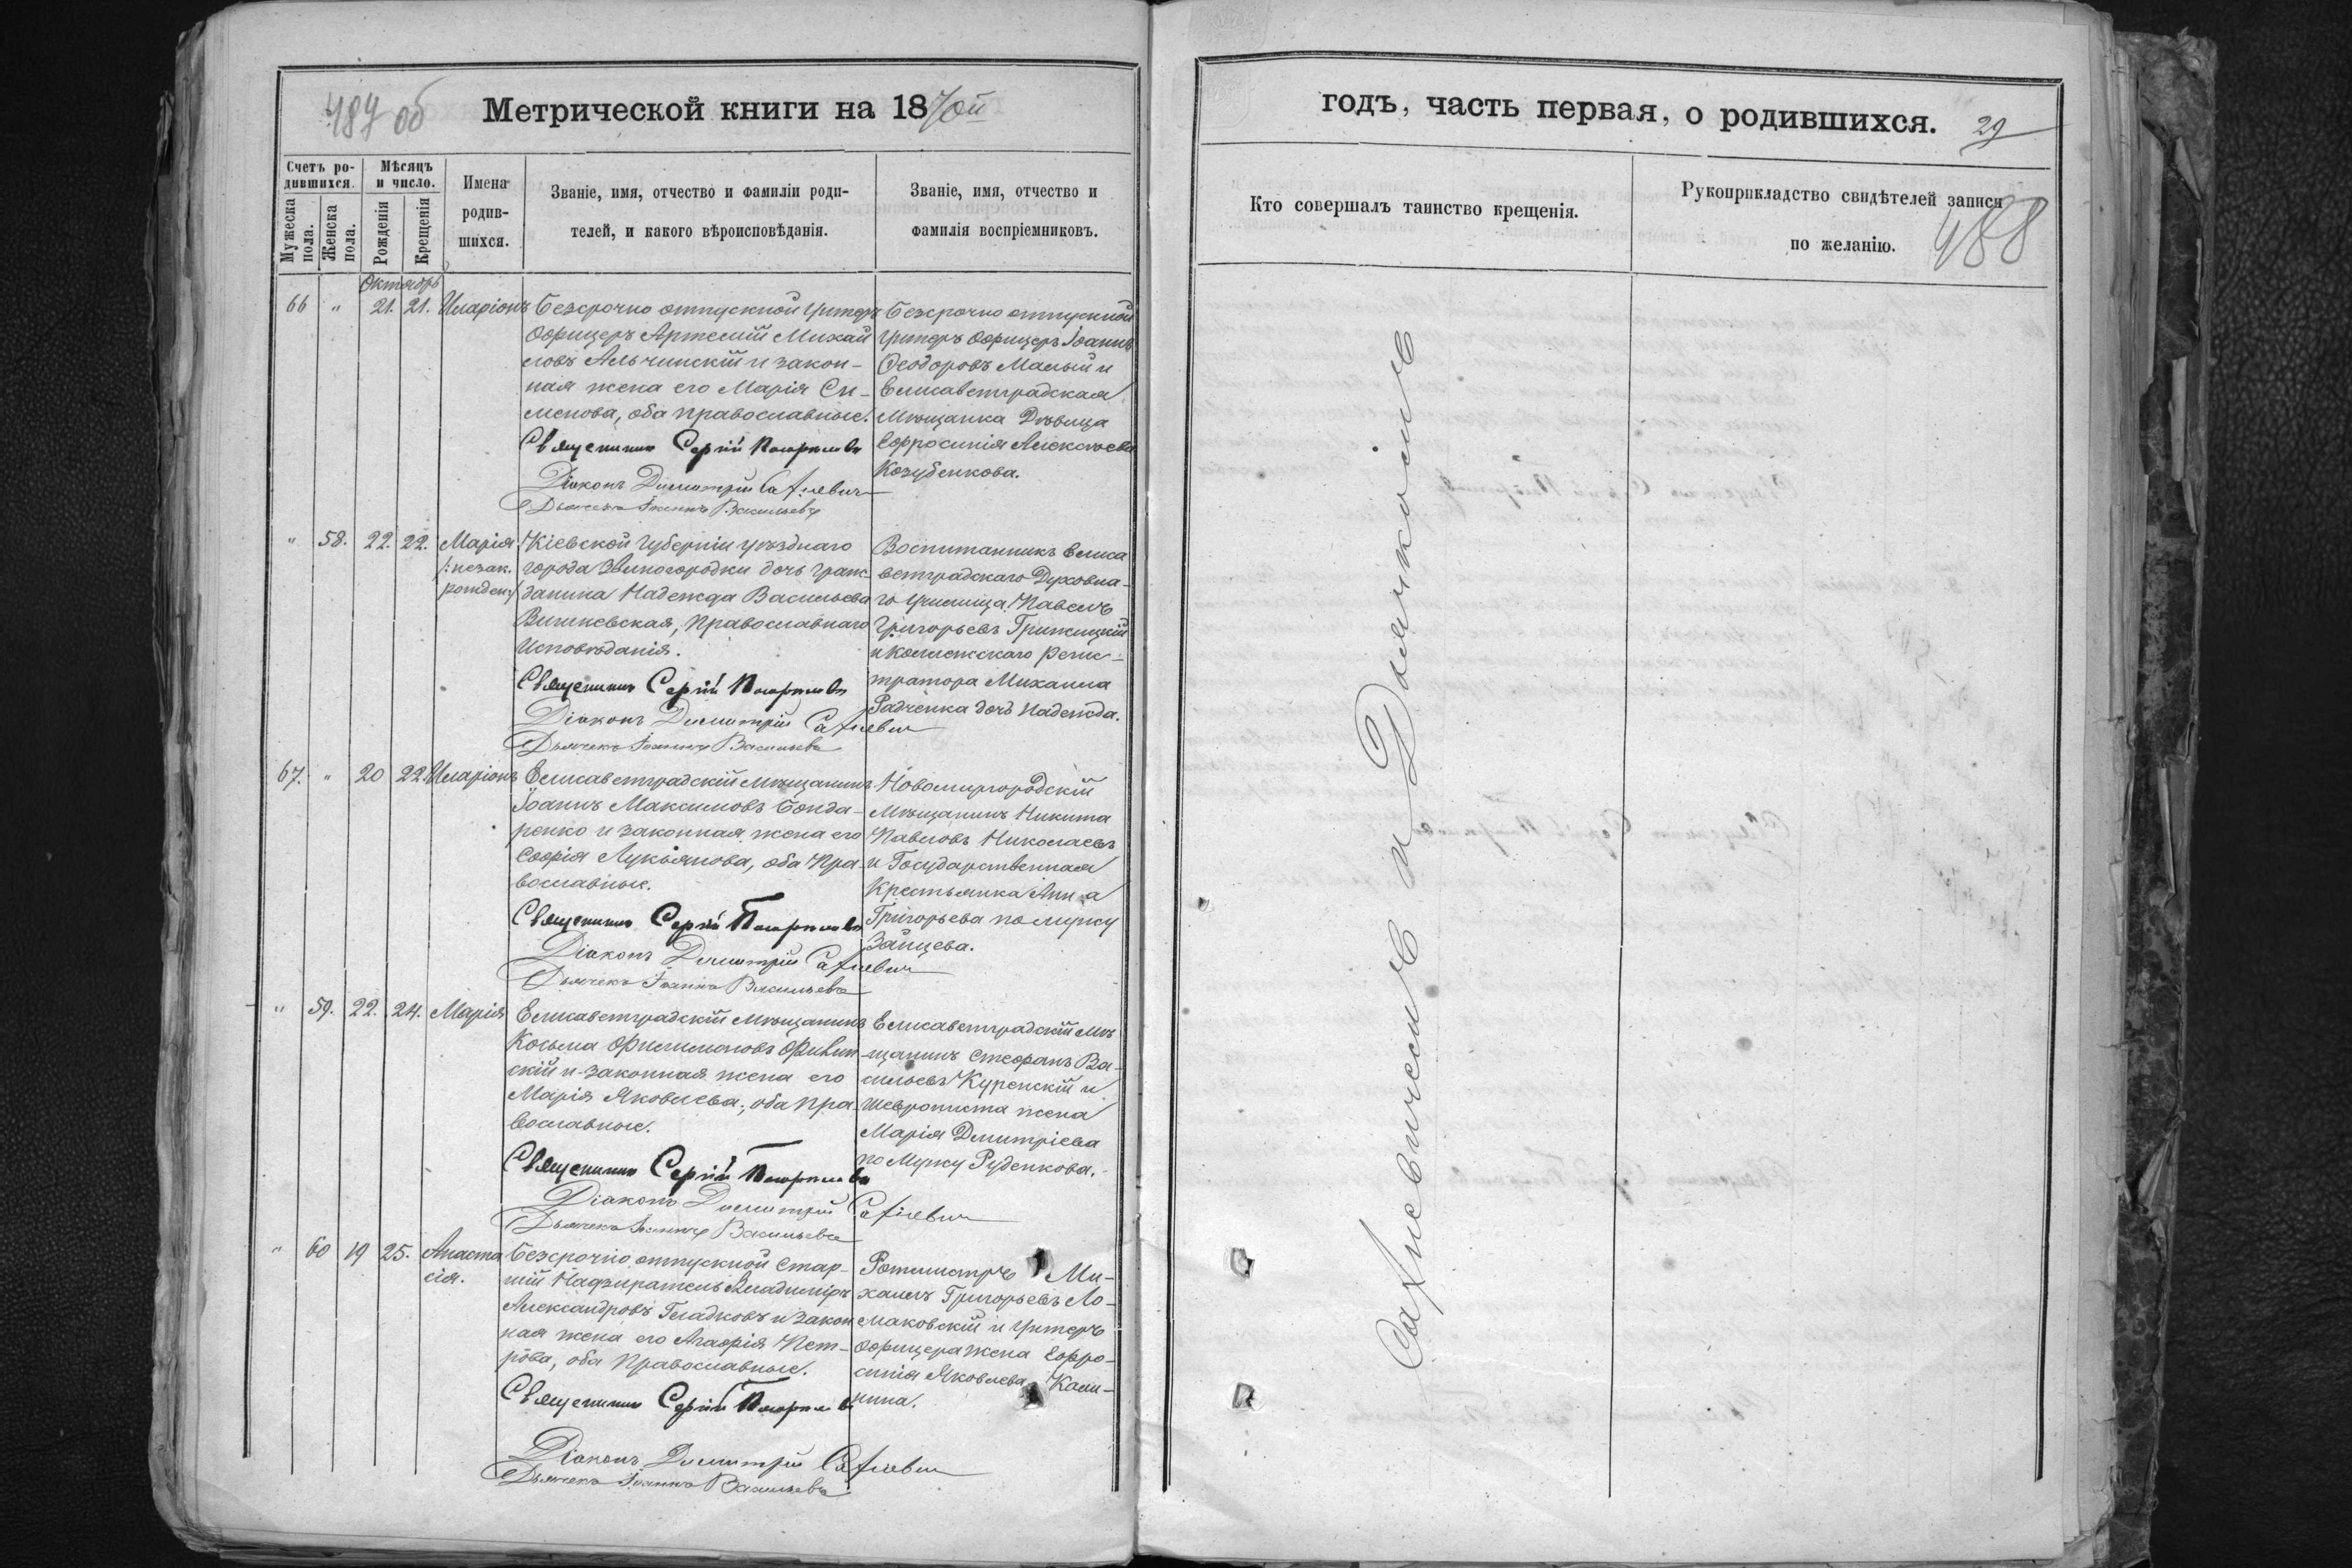 487 об
Метрической книги на 1870й
Счетъ ро-
дившихся.
Мѣсяцъ
и число.
Мужеска
пола.
Женска
пола.
Рожденія
Крещенія
Имена
родив-
шихся.
Званіе, имя, отчество и фамиліи роди-
телей, и какого вѣроисповѣданія.
Званіе, имя, отчество и
фамилія воспріемниковъ.
Октябрь
66 " 21. 21. Иларіонъ
Безсрочно отпускной Унтеръ
Офицеръ Артемій Михай
ловъ Альчинскій и закон-
ная жена его Марія Си-
менова, оба православные.
Священникъ Сергій
Діаконъ Димитрій Сахневичъ
Дьячекъ Іоаннъ Васильевъ
Безсрочно отпускной
Унтеръ Офицеръ Іоаннъ
Ѳеодоровъ Малый и
Елисаветградская
Мѣщанка Дѣвица
Ефросинія Алексѣева
Козубенкова.
" 58. 22. 22. Марія
/:незак.
рожден:/
Кіевской Губерніи уѣзднаго
города Звиногородки дочь граж-
занина Надежда Васильева
Вишневская, Православнаго
Исповѣданія.
Священникъ Сергій
Діаконъ Димитрій Сахневичъ
Дьячекъ Іоаннъ Васильевъ
Воспитанникъ Елиса
ветградскаго Духовна-
го Училища Павелъ
Григорьевъ Грижицкій
и Коллежскаго Регис-
тратора Михаила
Радченка дочь Надежда.
67. " 20 22. Иларіонъ
Елисаветградскій мѣщанинъ
Іоаннъ Максимовъ Бонда-
ренко и законная жена его
Софія Лукьянова, оба Пра-
вославные.
Священникъ Сергій
Діаконъ Димитрій Сахневичъ
Дьячекъ Іоаннъ Васильевъ
Новомиргородскій
Мѣщанинъ Никита
Павловъ Николаевъ
и Государственная
Крестьянка Анна
Григорьева по мужу
Зайцева.
" 59. 22. 24. Марія
Елисаветградскій мѣщанинъ
Косьма Филимоновъ
скій и законная жена его
Марія Яковлева, оба пра
вославные.
Священникъ Сергій
Діаконъ Димитрій Сахневичъ
Дьячекъ Іоаннъ Васильевъ
Елисаветградскій мѣ
щанинъ Стефанъ Ва-
сильевъ Куренскій и
Шеврониста жена
Марія Димитріева
по Мужу Руденкова.
" 60 19 25. Анаста
сія.
Безсрочно отпускной Стар-
шій Надзиратель Владиміръ
Александровъ Гладковъ и закон
ная жена его Агафія Пет-
рова, оба Православные.
Священникъ Сергій
Діаконъ Димитрій Сахневичъ
Дьячекъ Іоаннъ Васильевъ
Ротмистръ Ми-
хаилъ Григорьевъ Ло-
маковскій и Унтеръ
Офицера жена Ефро-
синія Яковлева Кали-
нина.
годъ, часть первая, о родившихся.
29
Кто совершалъ таинство крещенія.
Рукоприкладство свидѣтелей записи
по желанію.
488
Сахневичемъ и Дьячкомъ